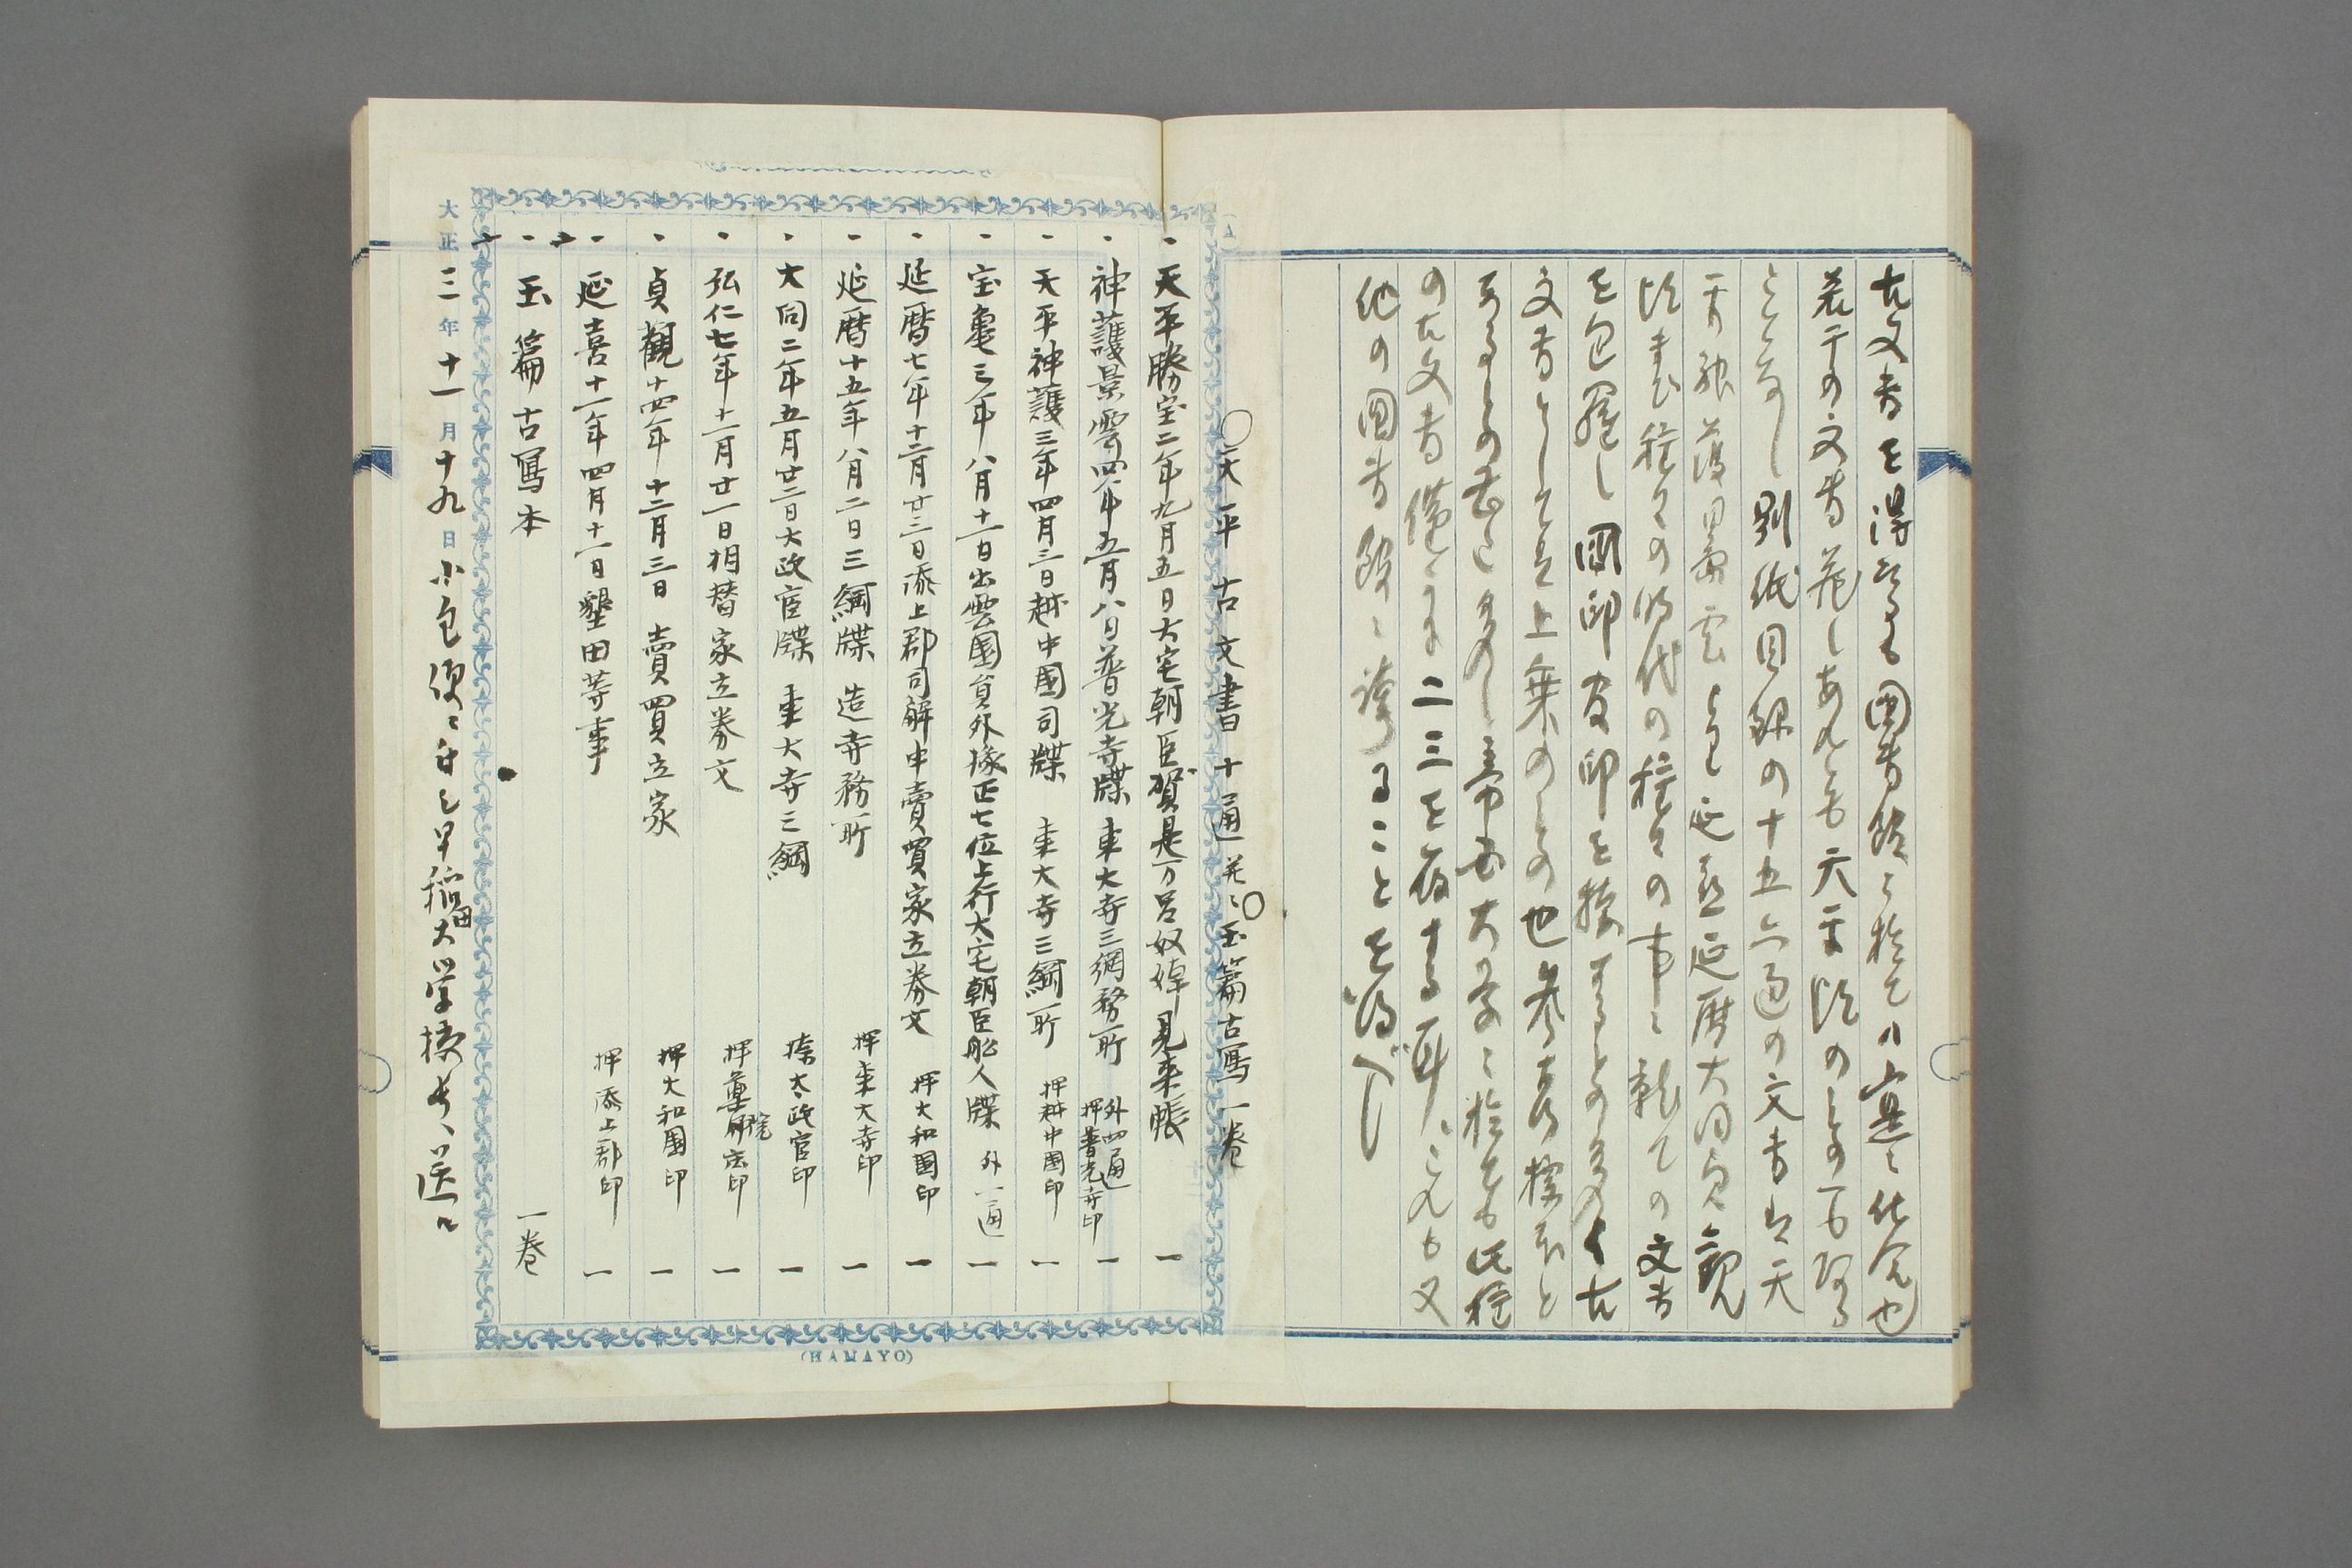 古文書を得るも図書館に於ては実に佳品也
若干の文書蔵しあれども天平頃のもの一も
となし別紙目録の十五六通の文書は天
平神護景雲より延喜延暦大同貞観
頃まで種々の時代の種々の事に就ての文書
を包羅し国印官印を捺するもの多く古
文書としては上乗のもの也参考標本と
するもの甚だ多し帝国大学に於ても此種
の古文書僅かに二三を蔵する耳、これも又
他の図書館に誇ることを得べし
〇天平古文書十通並〇玉篇古写一巻
・天平勝宝二年九月五日大宅朝臣賀是万呂奴婢見来帳 一
・神護景雲四年五月八日普光寺牒 東大寺三綱務所 外四通 押普光寺印 一
・天平神護三年四月三日越中國司牒 東大寺三綱所 押越中国印 一
・宝亀三年八月十一日出雲國員外掾正七位上行大宅朝臣船人牒 外一通 一
・延暦七年十二月廿三日添上郡司解申賣買家立券文 押大和国印 一
・延暦十五年八月二日三綱牒 造寺務所 押東大寺印 一
・大同二年五月廿二日大政官牒 東大寺三綱 捺太政官印 一
・弘仁七年十一月廿一日相替家立券文 押 印 一
・貞観十四年十二月三日賣買立家 押大和国印 一
・延喜十一年四月十一日墾田等事 押添上郡印 一
・玉篇古写本 一巻
大正三年十一月十九日小包便ニ付シ早稲田大学 送ル
(HAMAYO)